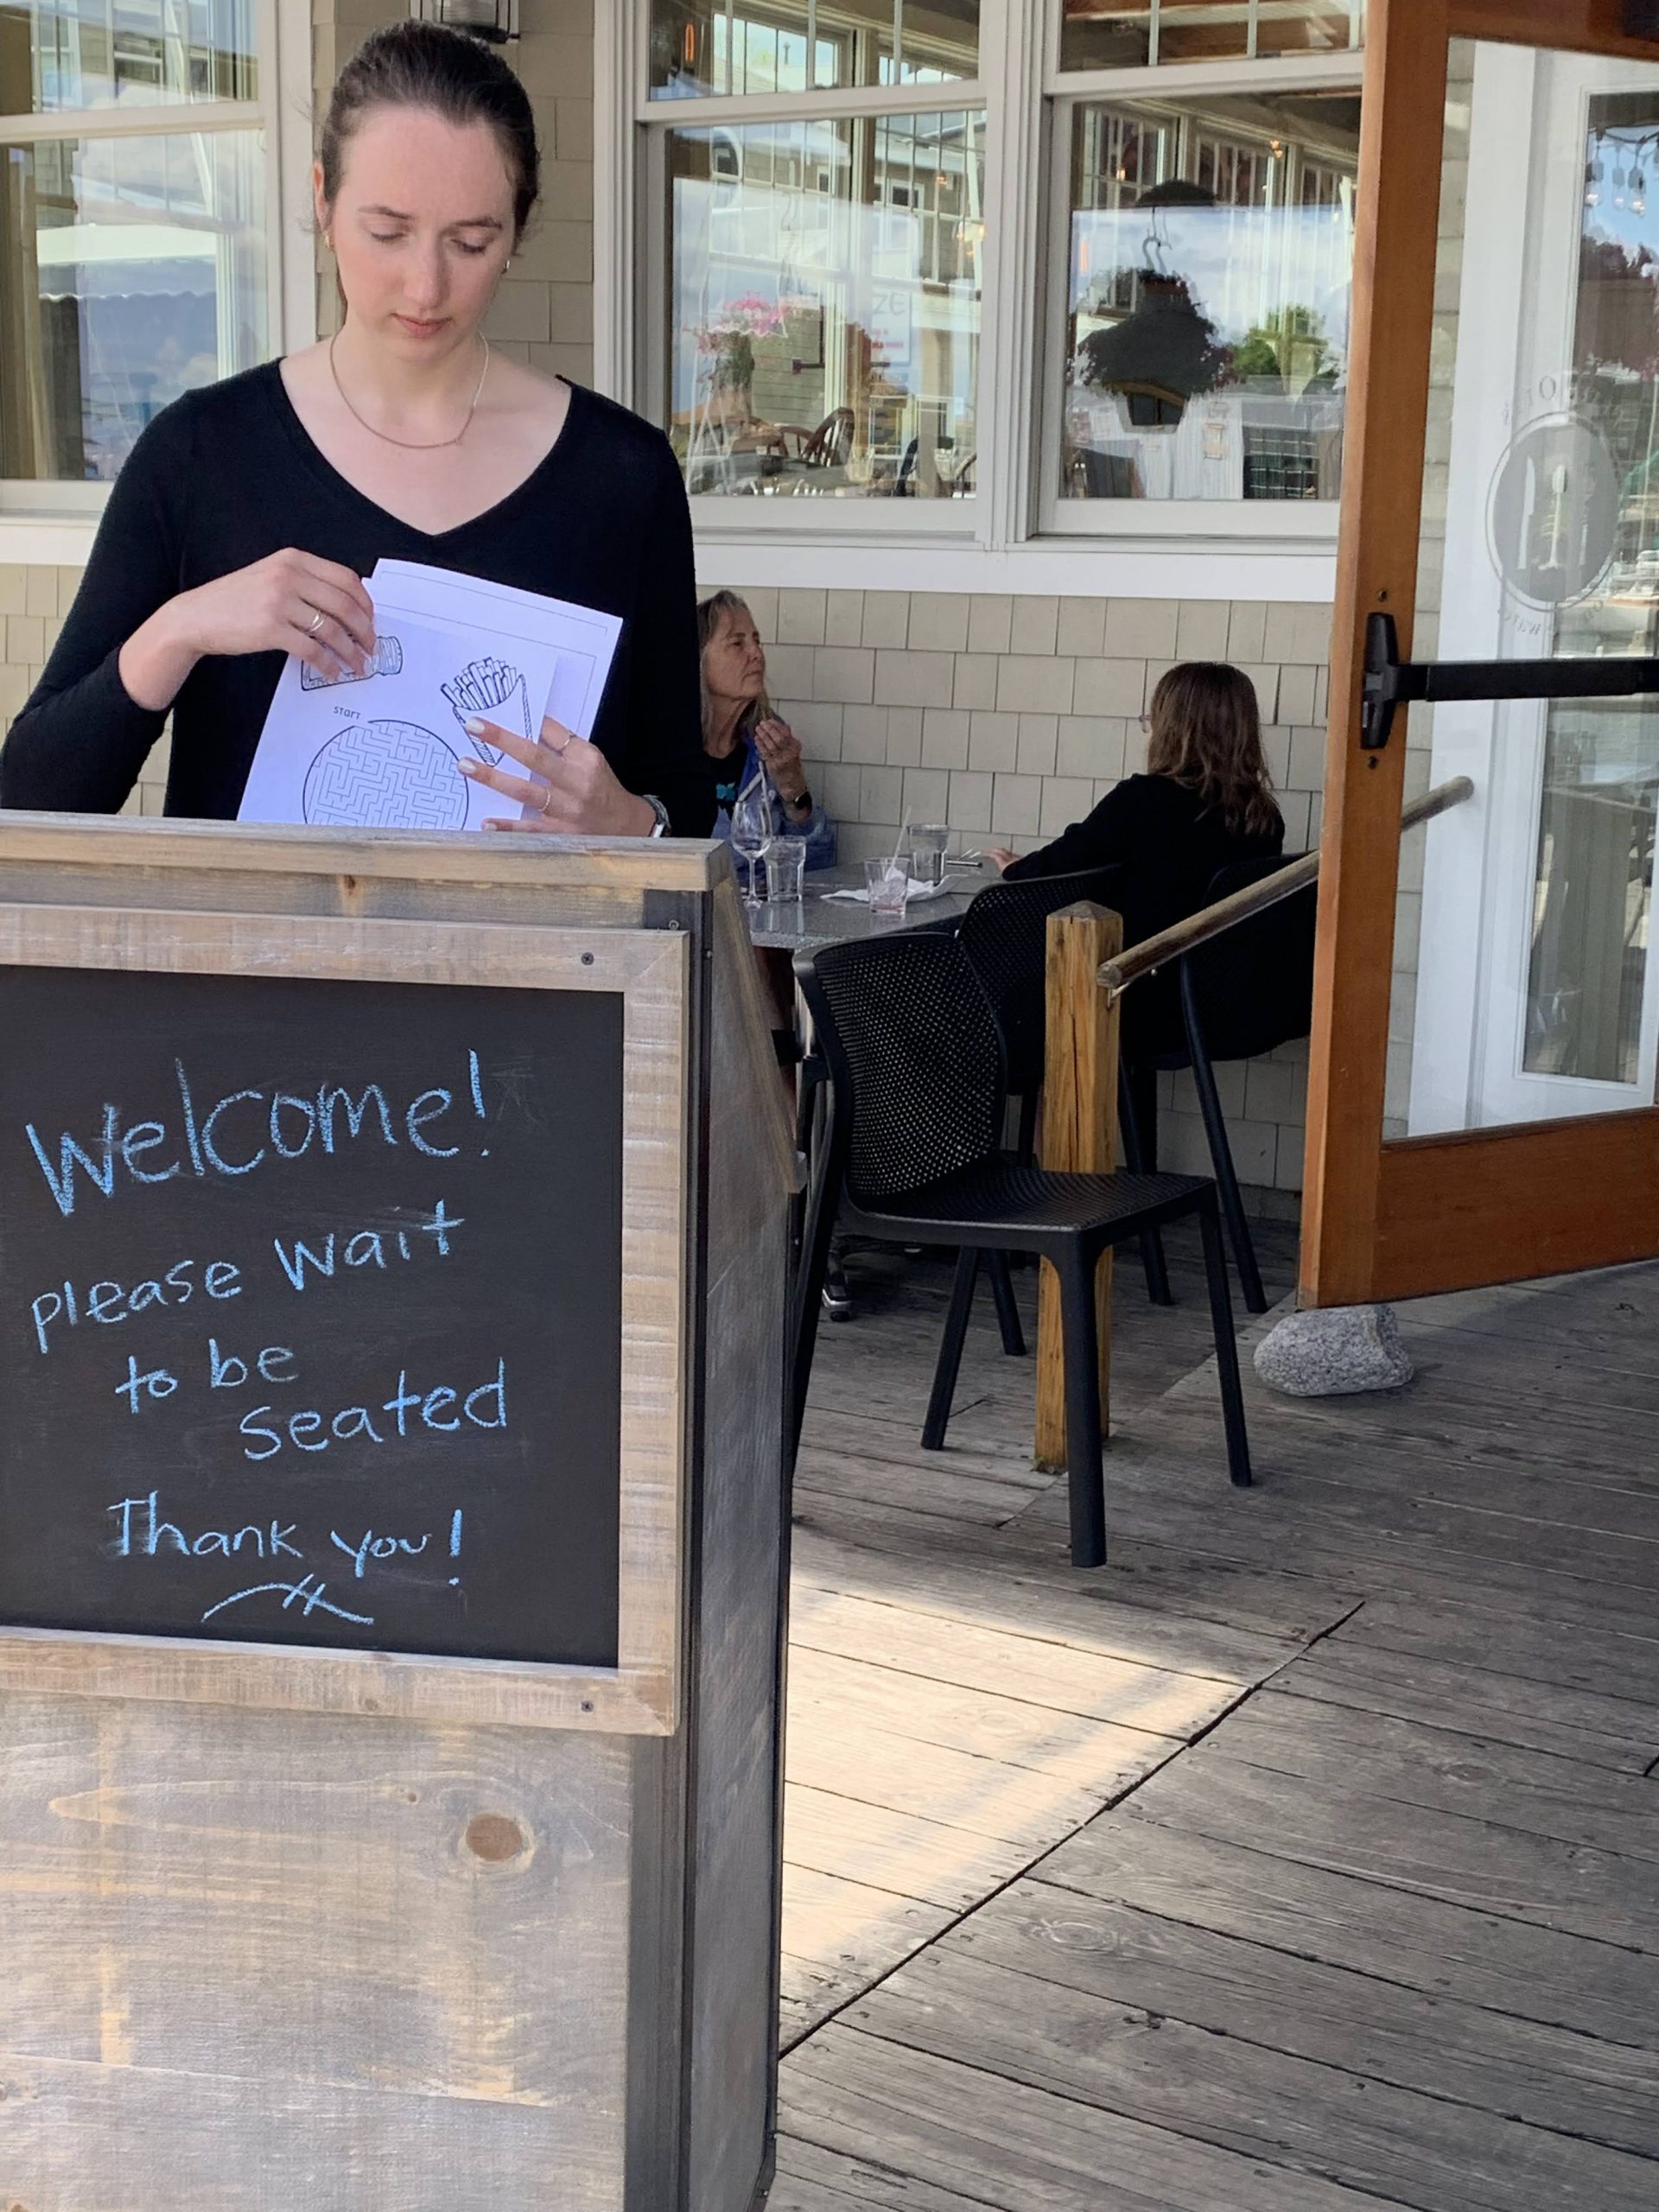 START
Welcome!
please wait
to be
seated
Thank you!